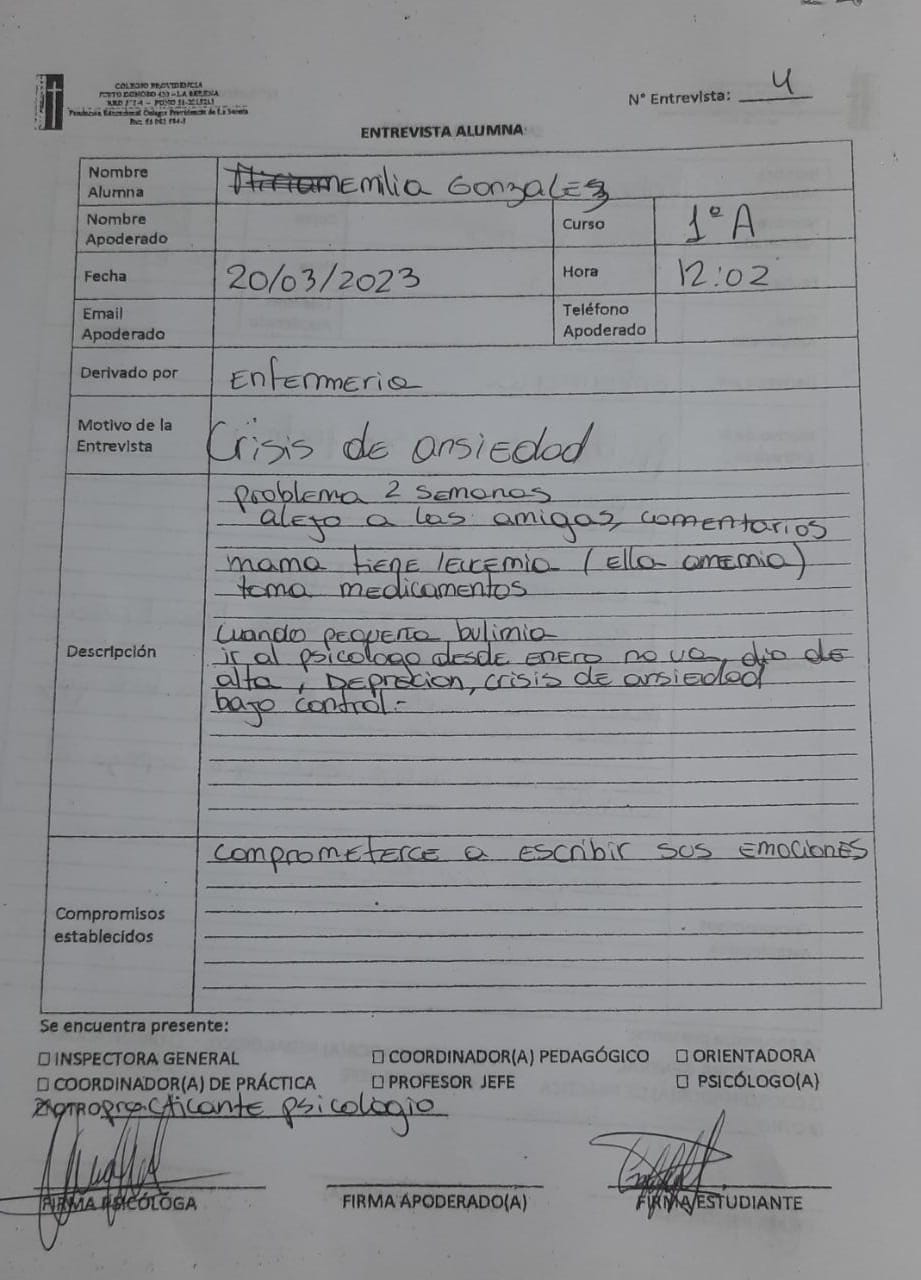 COLEGIO PROVIDENCIA
Fundación Educacional Colegio Providencia de La Serena
N° Entrevista: 4
ENTREVISTA ALUMNA
Nombre Alumna EMILIA GONZALEZ
Nombre Apoderado
Curso 1° A
Fecha 20/03/2023
Hora 12:02
Email Apoderado
Teléfono Apoderado
Derivado por Enfermeria
Motivo de la Entrevista Crisis de ansiedad
Descripción
problema 2 semanas
alejo a las amigas, comentarios
mama tiene leucemia (Ella anemia)
toma medicamentos
cuando pequeña bulimia
ir al psicologo desde enero no va, dio de
alta, Deprecion, crisis de ansiedad
bajo control.-
Compromisos establecidos
comprometerce a escribir sus emociones
Se encuentra presente:
☐ INSPECTORA GENERAL ☐ COORDINADOR(A) PEDAGÓGICO ☐ ORIENTADORA
☐ COORDINADOR(A) DE PRÁCTICA ☐ PROFESOR JEFE ☐ PSICÓLOGO(A)
OTRO practicante psicologia
FIRMA PSICÓLOGA FIRMA APODERADO(A) FIRMA ESTUDIANTE